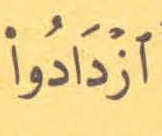 ٱزۡدَادُواْ